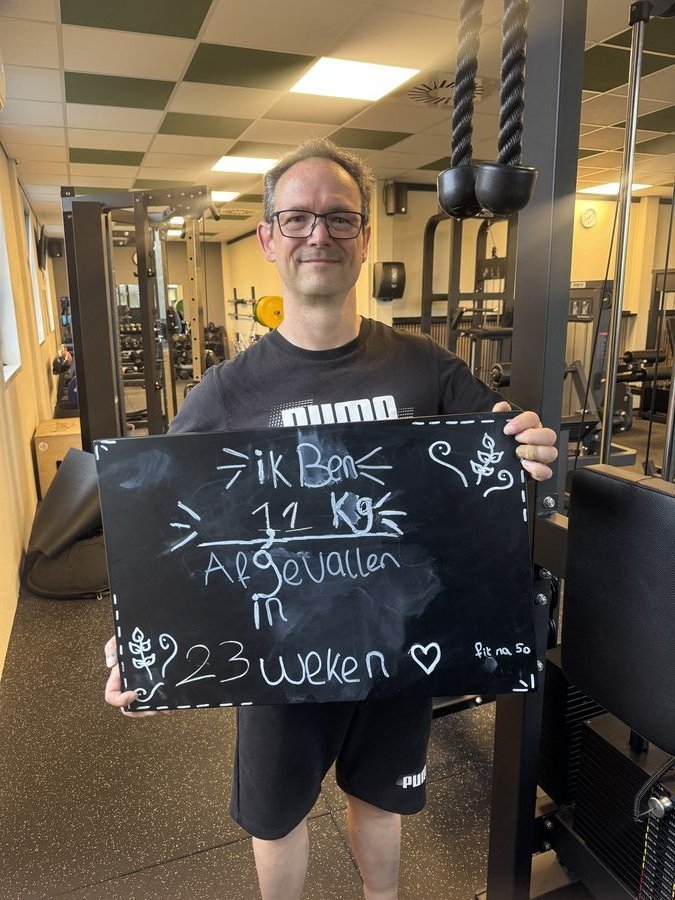 PUMA
ik Ben
11 Kg
Afgevallen
in
23 weken
fit na 50
PUM